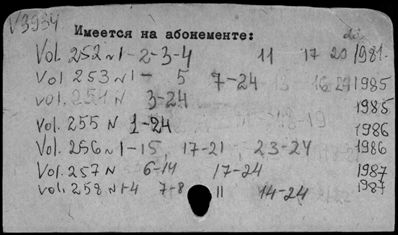 V3934
Имеется на абонементе:
Vol. 252 N 1-2-3-4 11 17 20/1981.
Vol 253 N 1- 5 7-24 1985
vol. 254 N 3-24 1985
Vol. 255 N 1-24 1986
Vol. 256 N 1-15, 17-21 23-24 1986
Vol. 257 N 6-14 17-24 1987
vol. 258 N 1-4 7-8 11 14-24 1987